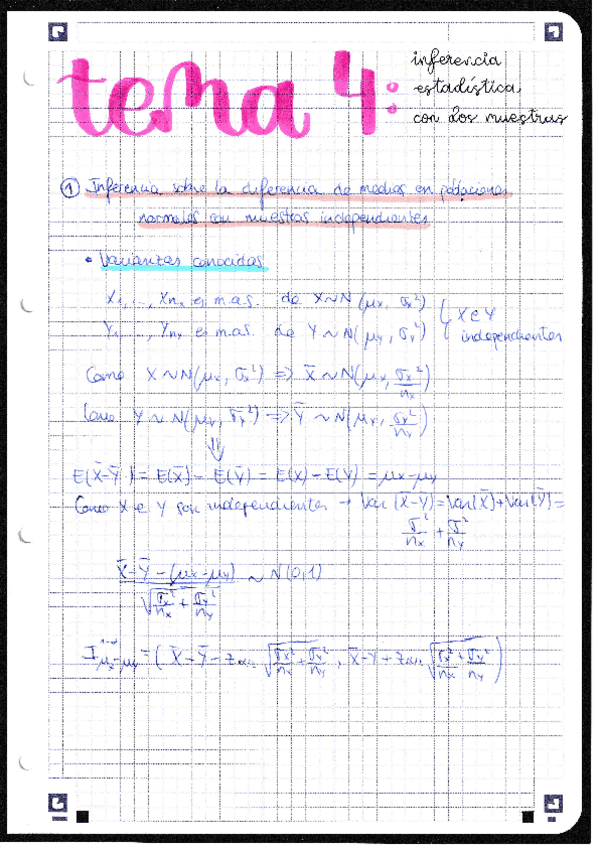 tema 4:
inferencia
estadística
con dos muestras
① Inferencia sobre la diferencia de medias en poblaciones
normales con muestras independientes
• Varianzas conocidas
X₁, ..., Xnₓ es m.a.s. de X~N(μx, σx²)
Y₁, ..., Yny es m.a.s. de Y~N(μy, σy²)
X e Y
independientes
Como X~N(μx, σx²) => X̄~N(μx, σx²/nx)
Como Y~N(μy, σy²) => Ȳ~N(μy, σy²/ny)
⇓
E(X̄-Ȳ) = E(X̄) - E(Ȳ) = E(X) - E(Y) = μx-μy
Como X e Y son independientes → Var(X̄-Ȳ) = Var(X̄)+Var(Ȳ) =
σx²/nx + σy²/ny
(X̄-Ȳ-(μx-μy))/√(σx²/nx + σy²/ny) ~ N(0,1)
I μx-μy = (X̄-Ȳ-zα/2 √(σx²/nx + σy²/ny), X̄-Ȳ+zα/2 √(σx²/nx + σy²/ny))